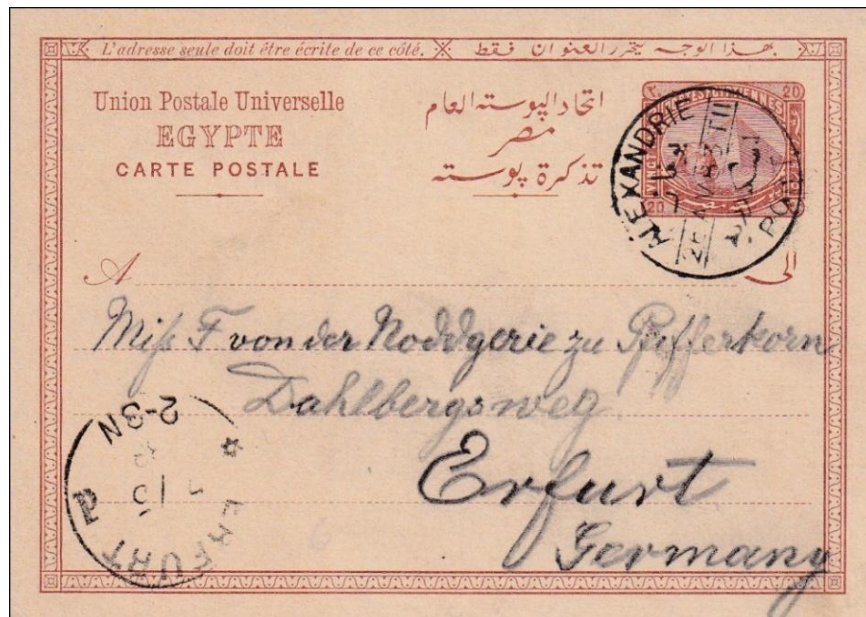 L'adresse seule doit être écrite de ce côté. بهذا الوجه يتحرر العنوان فقط
Union Postale Universelle
EGYPTE
CARTE POSTALE
اتحاد البوسته العام
مصر
تذكرة بوسته
20 20
20
ALEXANDRIE
A
الى
Miss F von der
zu
Dahlbergsweg
Erfurt
Germany
ERFURT
2-3N